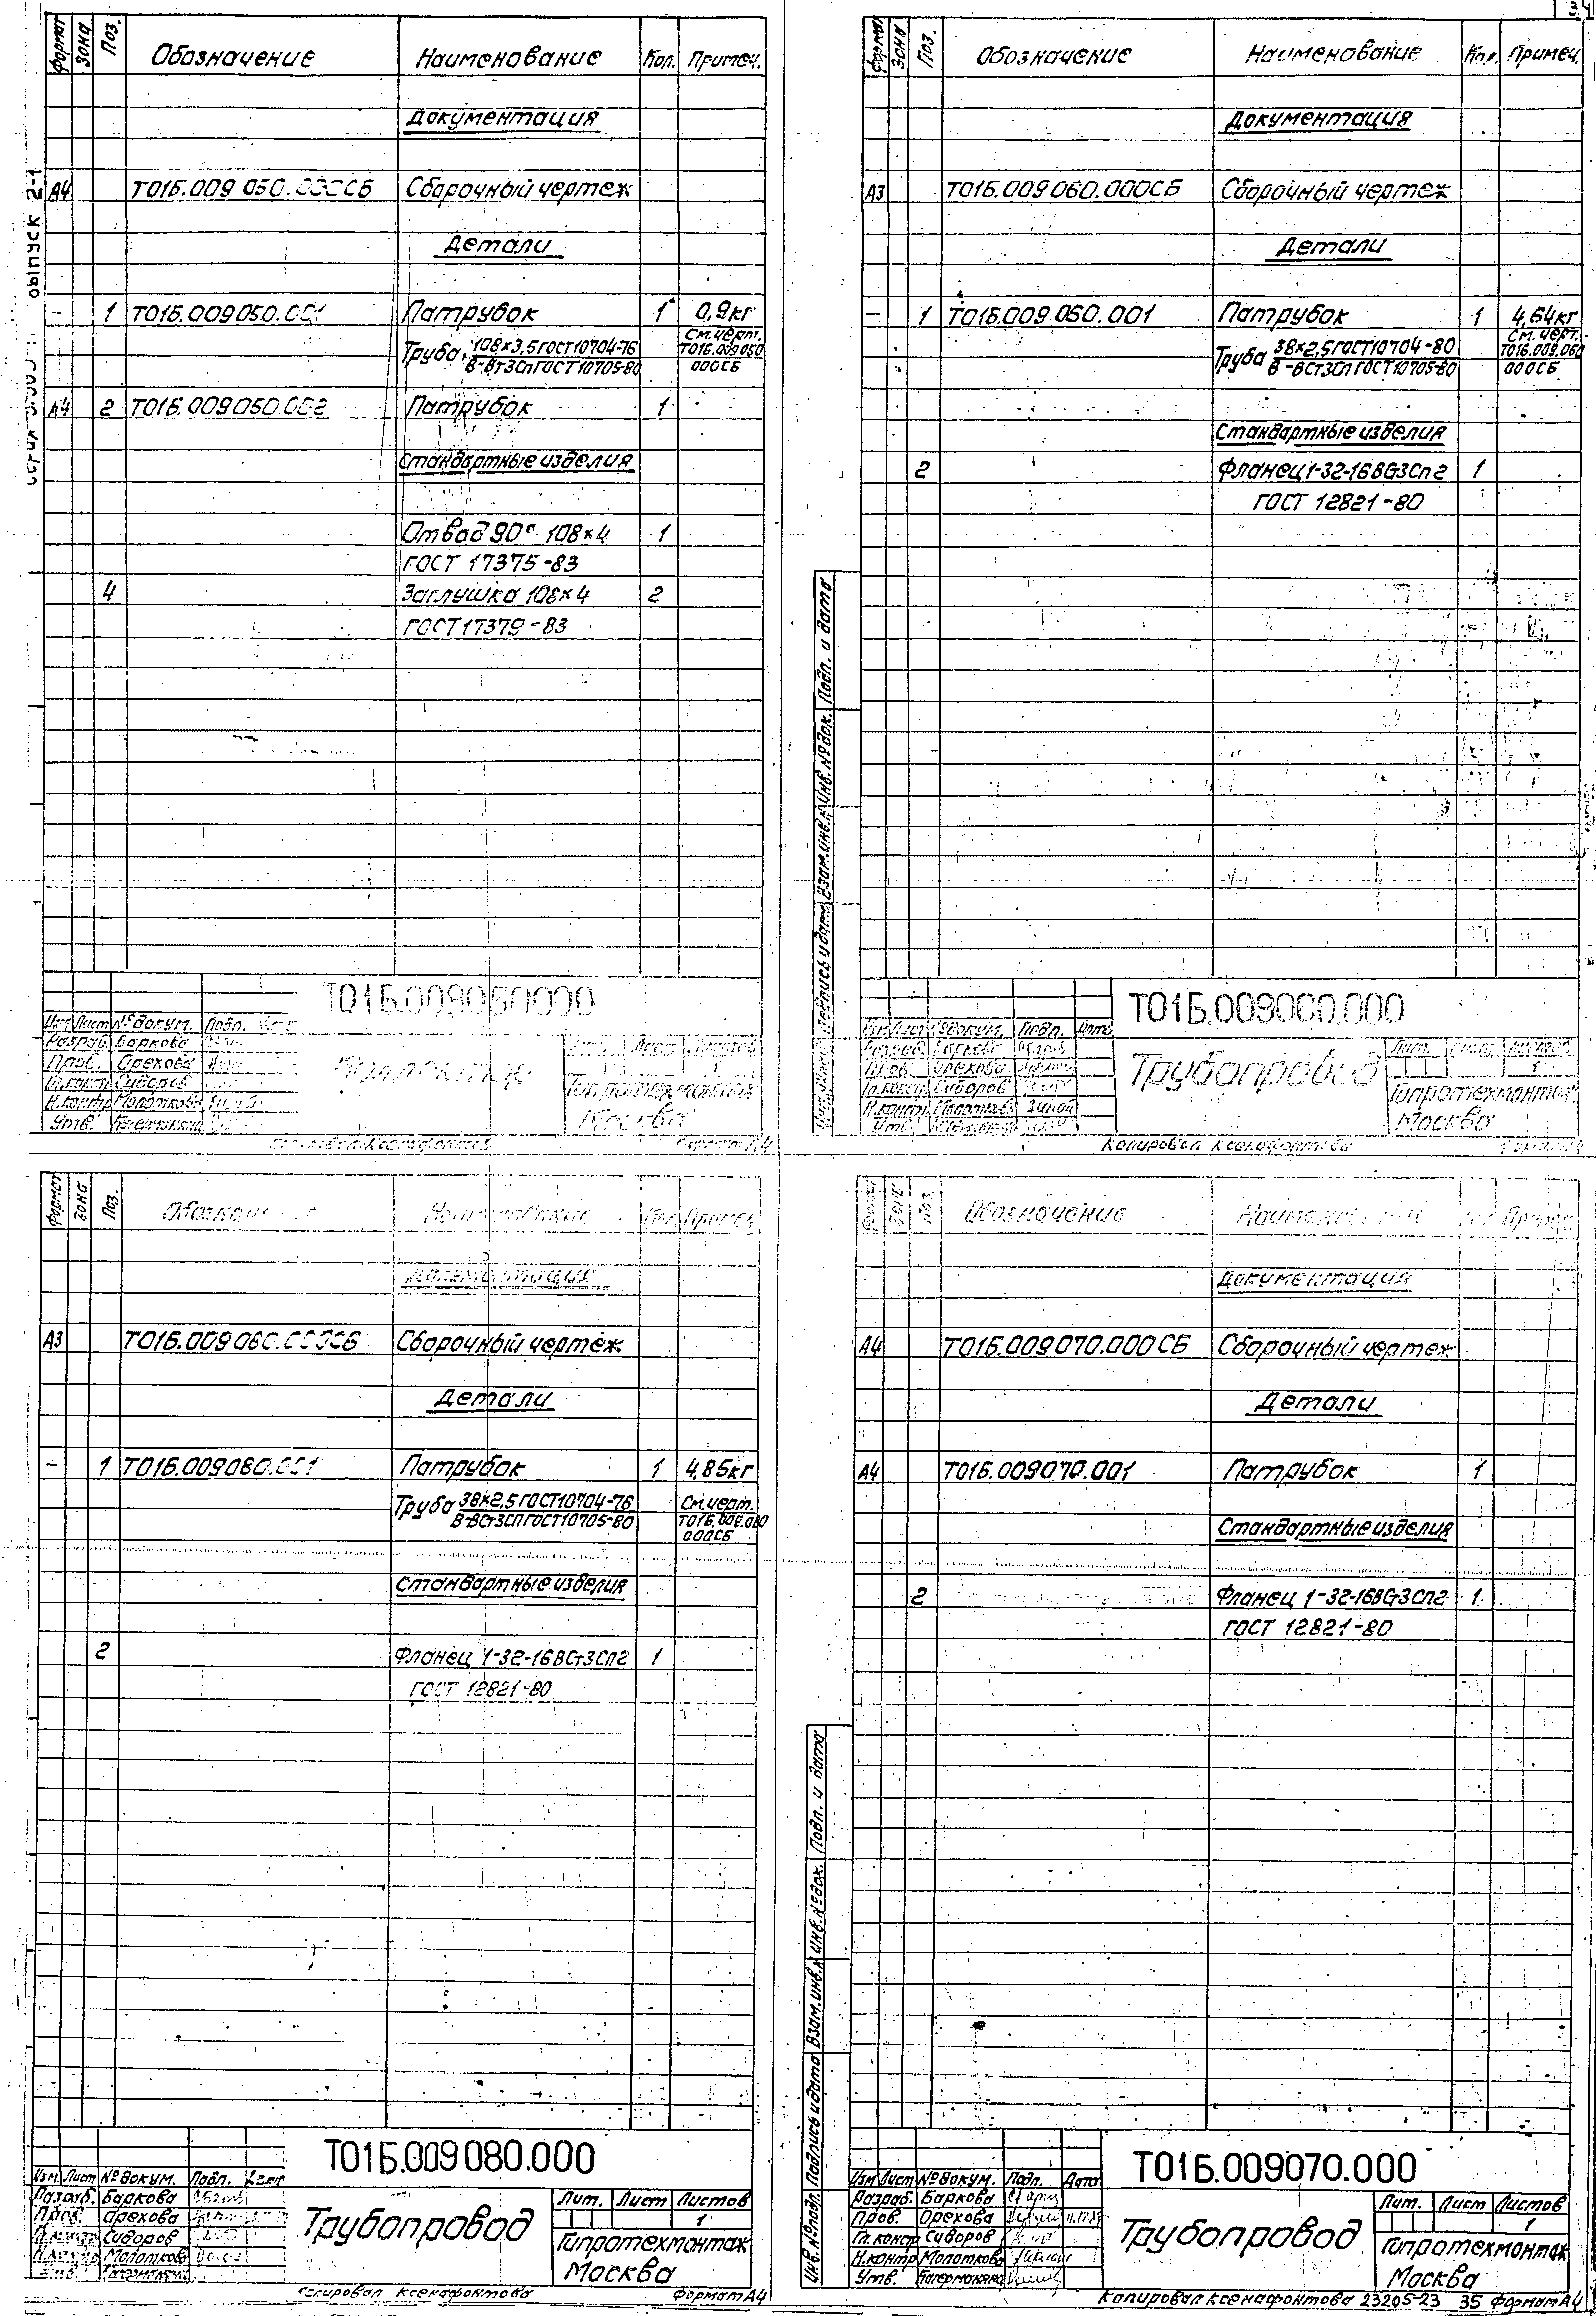 34
выпуск 2-1
Формат Зона Поз. Обозначение Наименование Кол. Примеч.
Документация
А4 Т01Б.009 050.000СБ Сборочный чертеж
Детали
- 1 Т01Б.009050.001 Патрубок 1 0,9кг
Труба 108×3,5 ГОСТ10704-76 См.черт.
В-Вт3СпГОСТ10705-80 Т01Б.009050
000СБ
А4 2 Т01Б.009050.002 Патрубок 1
Стандартные изделия
Отвод 90° 108×4 1
ГОСТ 17375-83
4 Заглушка 108×4 2
ГОСТ 17379-83
Т01Б.009050000
Изм. Лист №докум. Подп.
Разраб. Баркова
Пров. Орехова
Гл.контр Сидоров
Н.контр Молоткова
Утв.
Лист Листов
1
Гипротехмонтаж
Москва
Формат А4
Формат Зона Поз. Обозначение Наименование Кол. Примеч.
Документация
А3 Т01Б.009060.000СБ Сборочный чертеж
Детали
- 1 Т01Б.009.060.001 Патрубок 1 4,64кг
Труба 38×2,5ГОСТ10704-80 См.черт.
В-ВСт3спГОСТ10705-80 Т01Б.009.060
000СБ
Стандартные изделия
2 Фланец1-32-16ВСт3Сп2 1
ГОСТ 12821-80
Подпись и дата Взам.инв.№ Инв.№док. Подп. и дата
Т01Б.009060.000
Изм. Лист №докум. Подп. Дата
Разраб. Баркова
Пров. Орехова
Гл.контр Сидоров
Н.контр Молоткова
Утв.
Трубопровод
Лит. Лист Листов
1
Гипротехмонтаж
Москва
Копировал Ксенафонтова Формат А4
Формат Зона Поз. Обозначение Наименование Кол. Примеч.
Документация
А3 Т01Б.009080.000СБ Сборочный чертеж
Детали
- 1 Т01Б.009080.001 Патрубок 1 4,85кг
Труба 38×2,5ГОСТ10704-76 См.черт.
В-ВСт3СпГОСТ10705-80 Т01Б.009.080
000СБ
Стандартные изделия
2 Фланец 1-32-16ВСт3Сп2 1
ГОСТ 12821-80
Т01Б.009080.000
Изм. Лист №докум. Подп. Дата
Разраб. Баркова
Пров. Орехова
Гл.контр Сидоров
Н.контр Молоткова
Утв.
Трубопровод
Лит. Лист Листов
1
Гипротехмонтаж
Москва
Копировал Ксенафонтова Формат А4
Формат Зона Поз. Обозначение Наименование Кол. Примеч.
Документация
А4 Т01Б.009070.000СБ Сборочный чертеж
Детали
А4 Т01Б.009070.001 Патрубок 1
Стандартные изделия
2 Фланец 1-32-16ВСт3Сп2 1
ГОСТ 12821-80
Инв.№подл. Подпись и дата Взам.инв.№ Инв.№док. Подп. и дата
Т01Б.009070.000
Изм Лист №докум. Подп. Дата
Разраб. Баркова
Пров. Орехова
Гл.контр Сидоров
Н.контр Молоткова
Утв.
Трубопровод
Лит. Лист Листов
1
Гипротехмонтаж
Москва
Копировал Ксенафонтова 23205-23 35 Формат А4